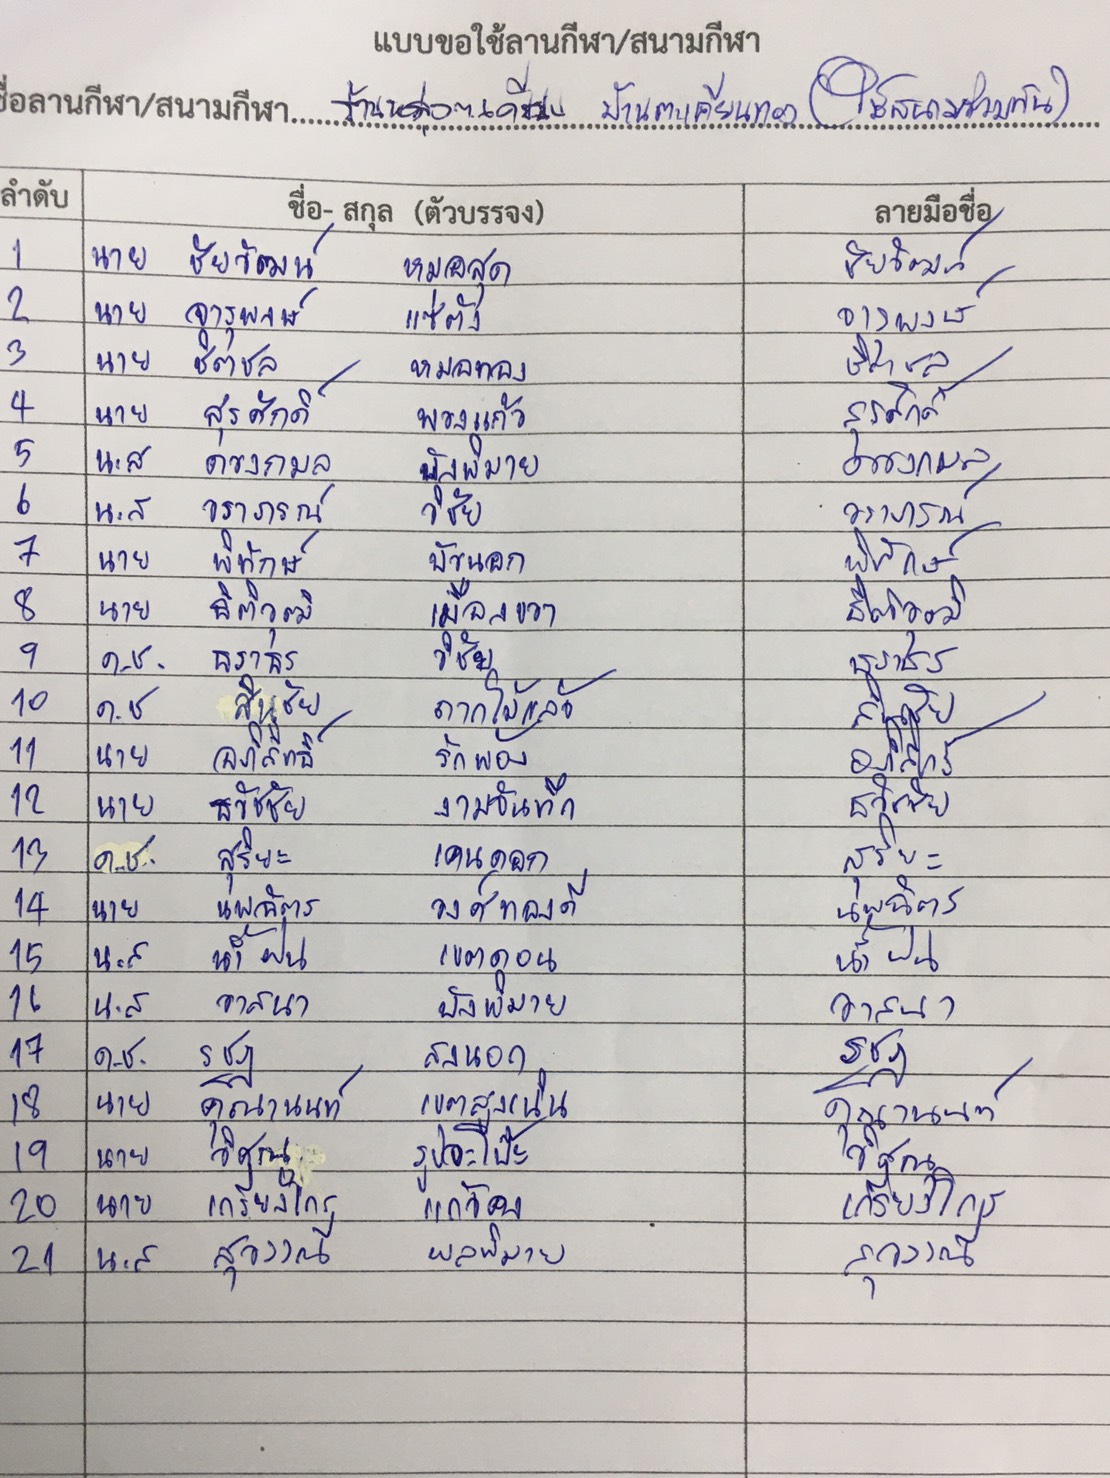 แบบขอใช้ลานกีฬา/สนามกีฬา
ชื่อลานกีฬา/สนามกีฬา.... บ้านตะเคียนทอง (ใช้สนามร่วมกัน)
ลำดับ ชื่อ- สกุล (ตัวบรรจง) ลายมือชื่อ
1 นาย ชัยวัฒน์ หมอสุด ชัยวัฒน์
2 นาย จารุพงษ์ แซ่ตัง จารุพงษ์
3 นาย ชิตชล หมอทอง ชิตชล
4 นาย สุรศักดิ์ พวงแก้ว สุรศักดิ์
5 น.ส ดวงกมล พิมาย ดวงกมล
6 น.ส วราภรณ์ วิชัย วราภรณ์
7 นาย พิทักษ์ บัวนอก พิทักษ์
8 นาย ธิติวุฒิ ธิติวุฒิ
9 ด.ช. ธราธร วิชัย ธราธร
10 ด.ช สินชัย ดากไม้แล้ว สินชัย
11 นาย อภิสิทธิ์ รักพอง อภิสิทธิ์
12 นาย ธวัชชัย งามจันทึก ธวัชชัย
13 ด.ช. สุริยะ เดนดอก สุริยะ
14 นาย นพฉัตร วงศ์ทองดี นพฉัตร
15 น.ส น้ำฝน เขตดอน น้ำฝน
16 น.ส วาสนา พิมาย วาสนา
17 ด.ช. รชฏ สงนอก รชฏ
18 นาย คุณานนท์ เขตสูงเนิน คุณานนท์
19 นาย วิศรุต
20 นาย เกรียงไกร แก้วคง เกรียงไกร
21 น.ส สุวรรณี พลพิมาย สุวรรณี